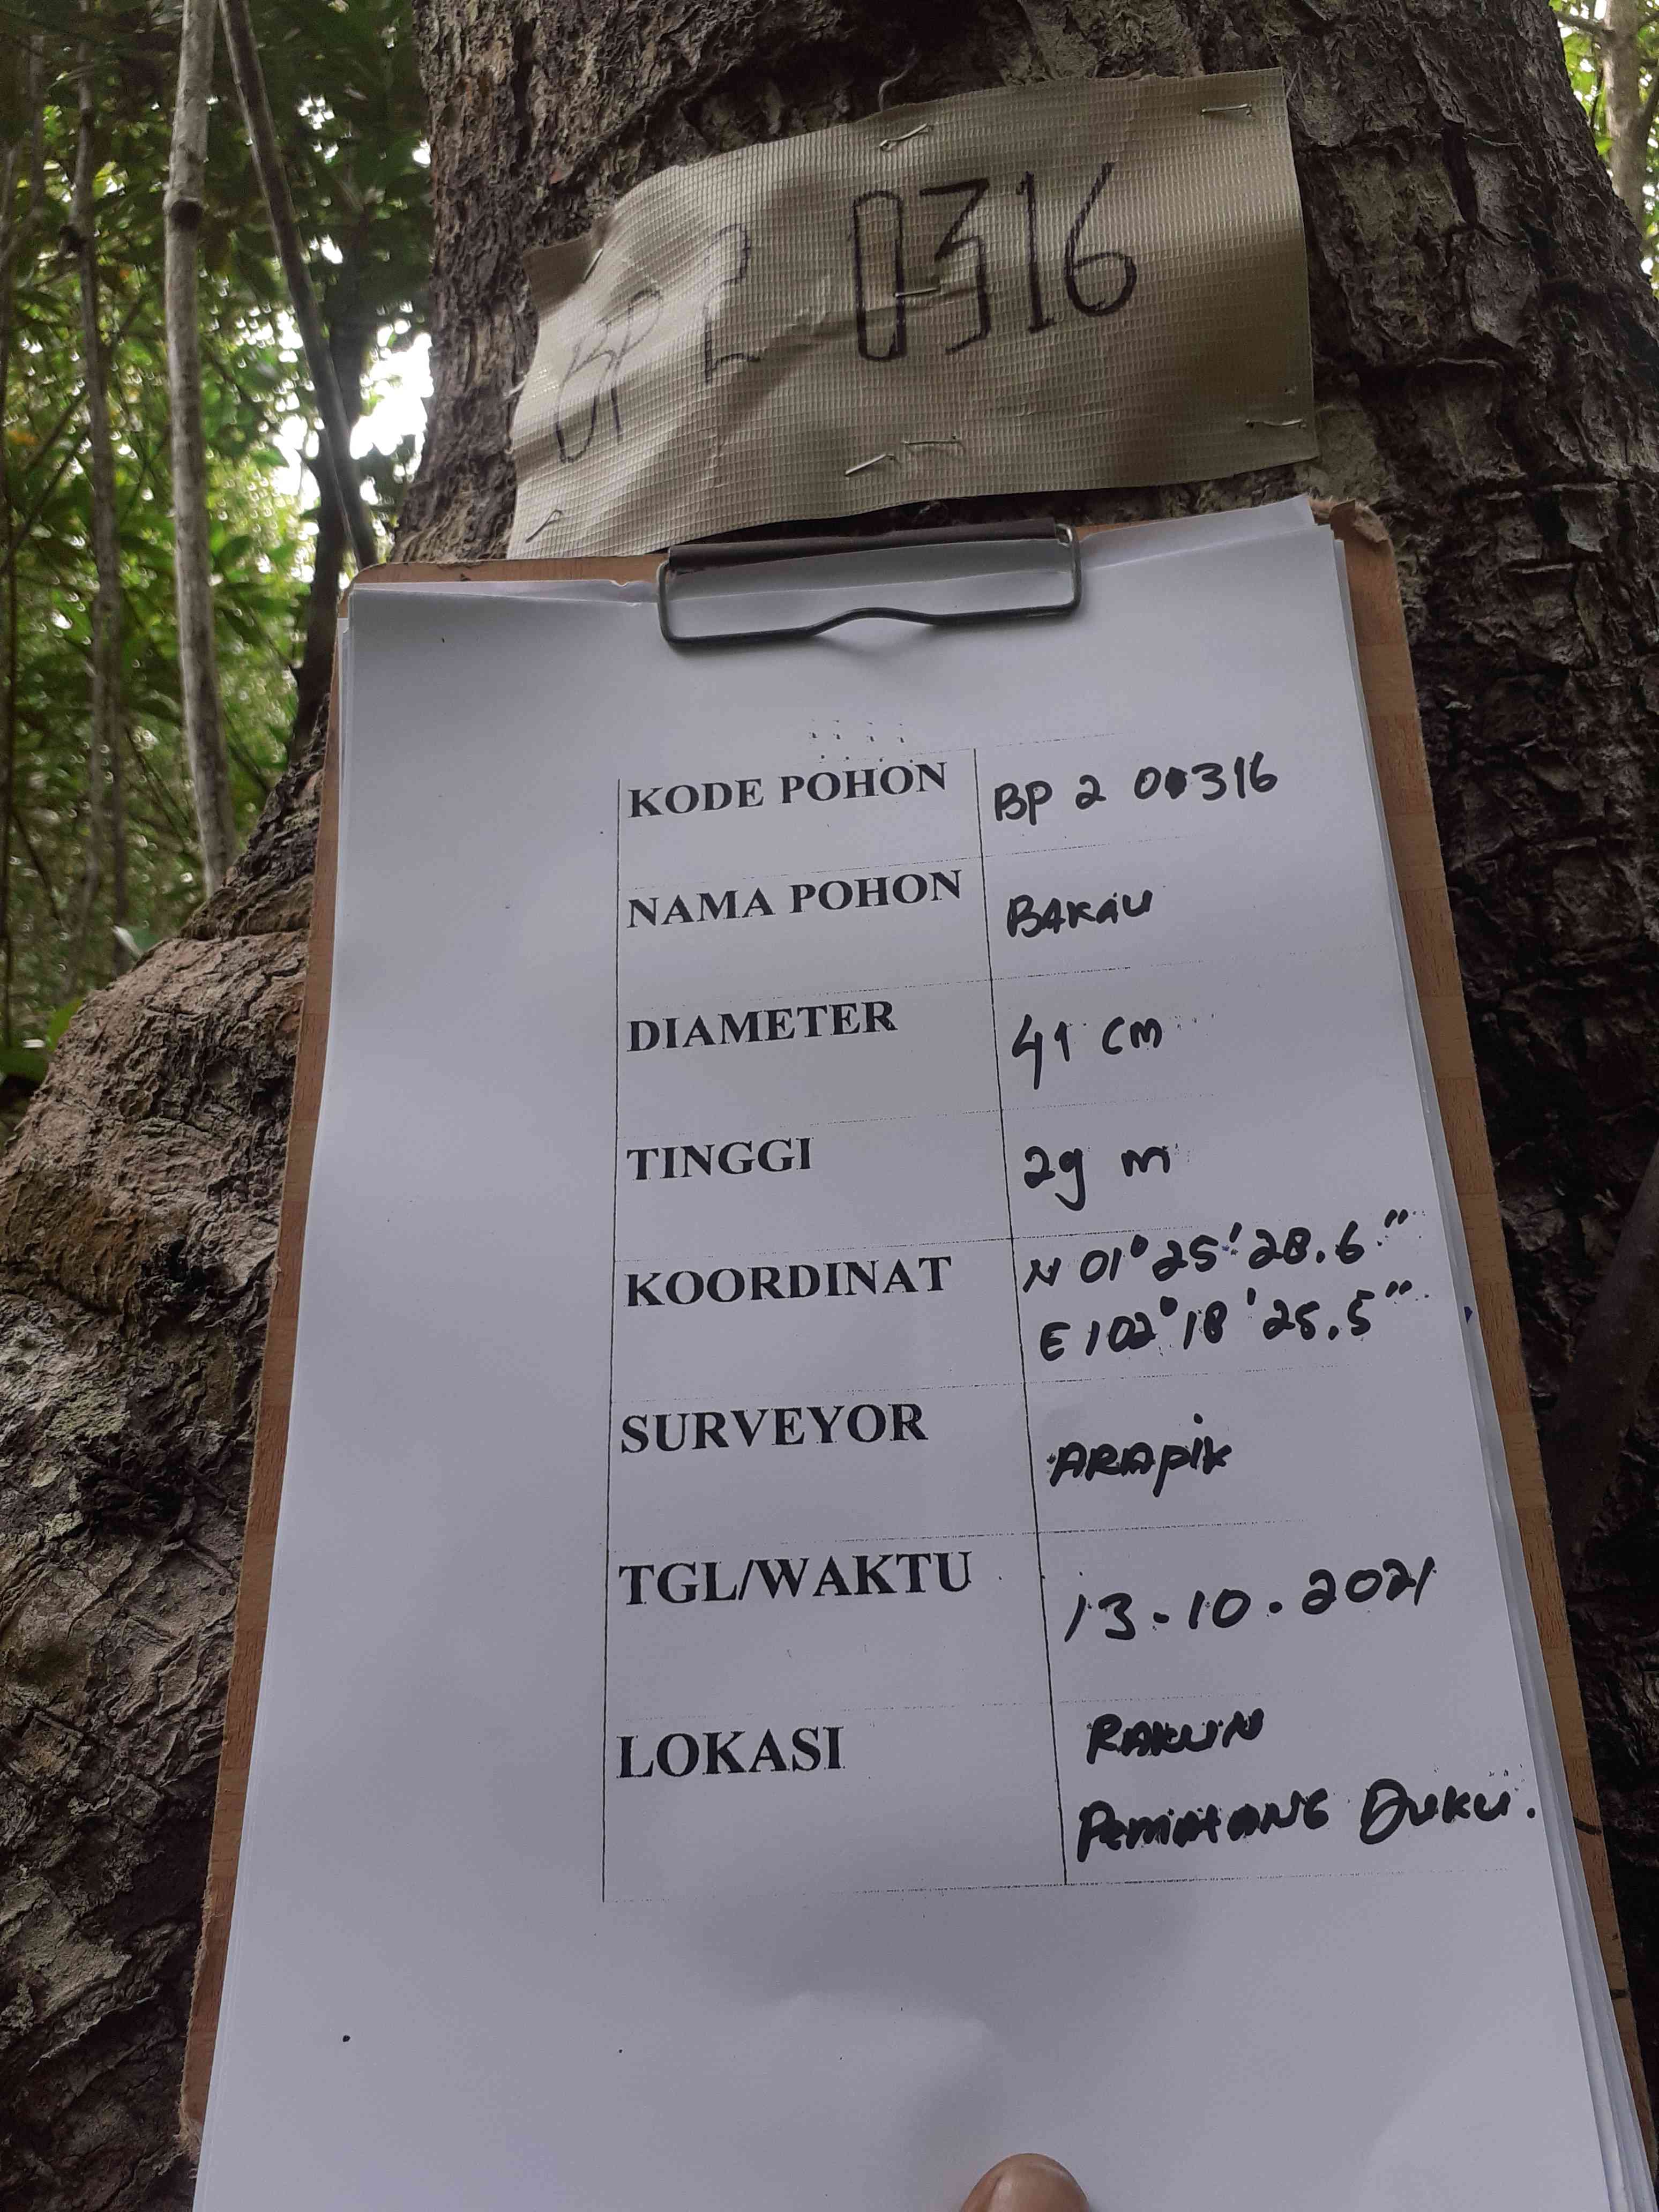 BP 2 0316
KODE POHON BP 2 00316
NAMA POHON BAKAU
DIAMETER 41 cm
TINGGI 29 m
KOORDINAT N 01° 25' 28.6"
E 102° 18' 25.5"
SURVEYOR ARAPIK
TGL/WAKTU 13-10-2021
LOKASI RAKUN
PEMATANG DUKU.